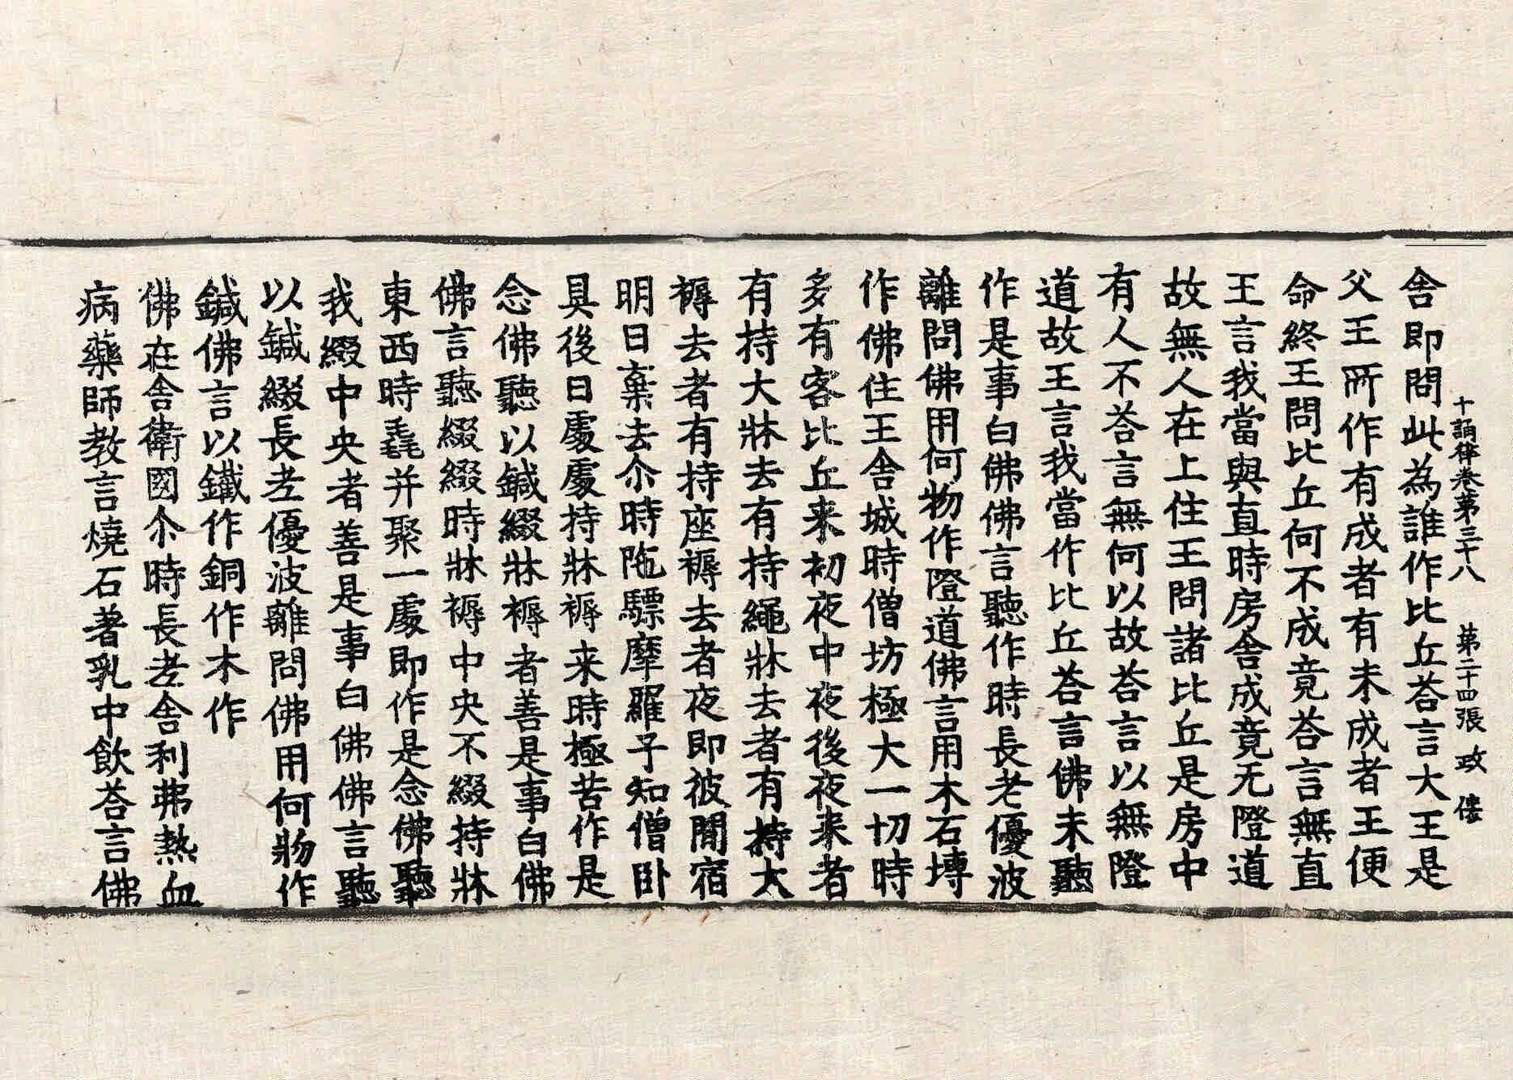 十誦律卷第三十八 第二十四張 政
舍即問此為誰作比丘荅言大王是
父王所作有成者有未成者王便
命終王問比丘何不成竟荅言無直
王言我當與直時房舍成竟无隥道
故無人在上住王問諸比丘是房中
有人不荅言無何以故荅言以無隥
道故王言我當作比丘荅言佛未聽
作是事白佛佛言聽作時長老優波
離問佛用何物作隥道佛言用木石塼
作佛住王舍城時僧坊極大一切時
多有客比丘来初夜中夜後夜来者
有持大牀去有持繩牀去者有持大
褥去者有持座褥去者夜即彼閒宿
明日棄去尒時陁驃摩羅子知僧卧
具後日處處持牀褥来時極苦作是
念佛聽以鍼綴牀褥者善是事白佛
佛言聽綴綴時牀褥中央不綴持牀
東西時毳并聚一處即作是念佛聽
我綴中央者善是事白佛佛言聽
以鍼綴長老優波離問佛用何物作
鍼佛言以鐵作銅作木作
佛在舍衛國尒時長老舍利弗熱血
病藥師教言燒石著乳中飲荅言佛